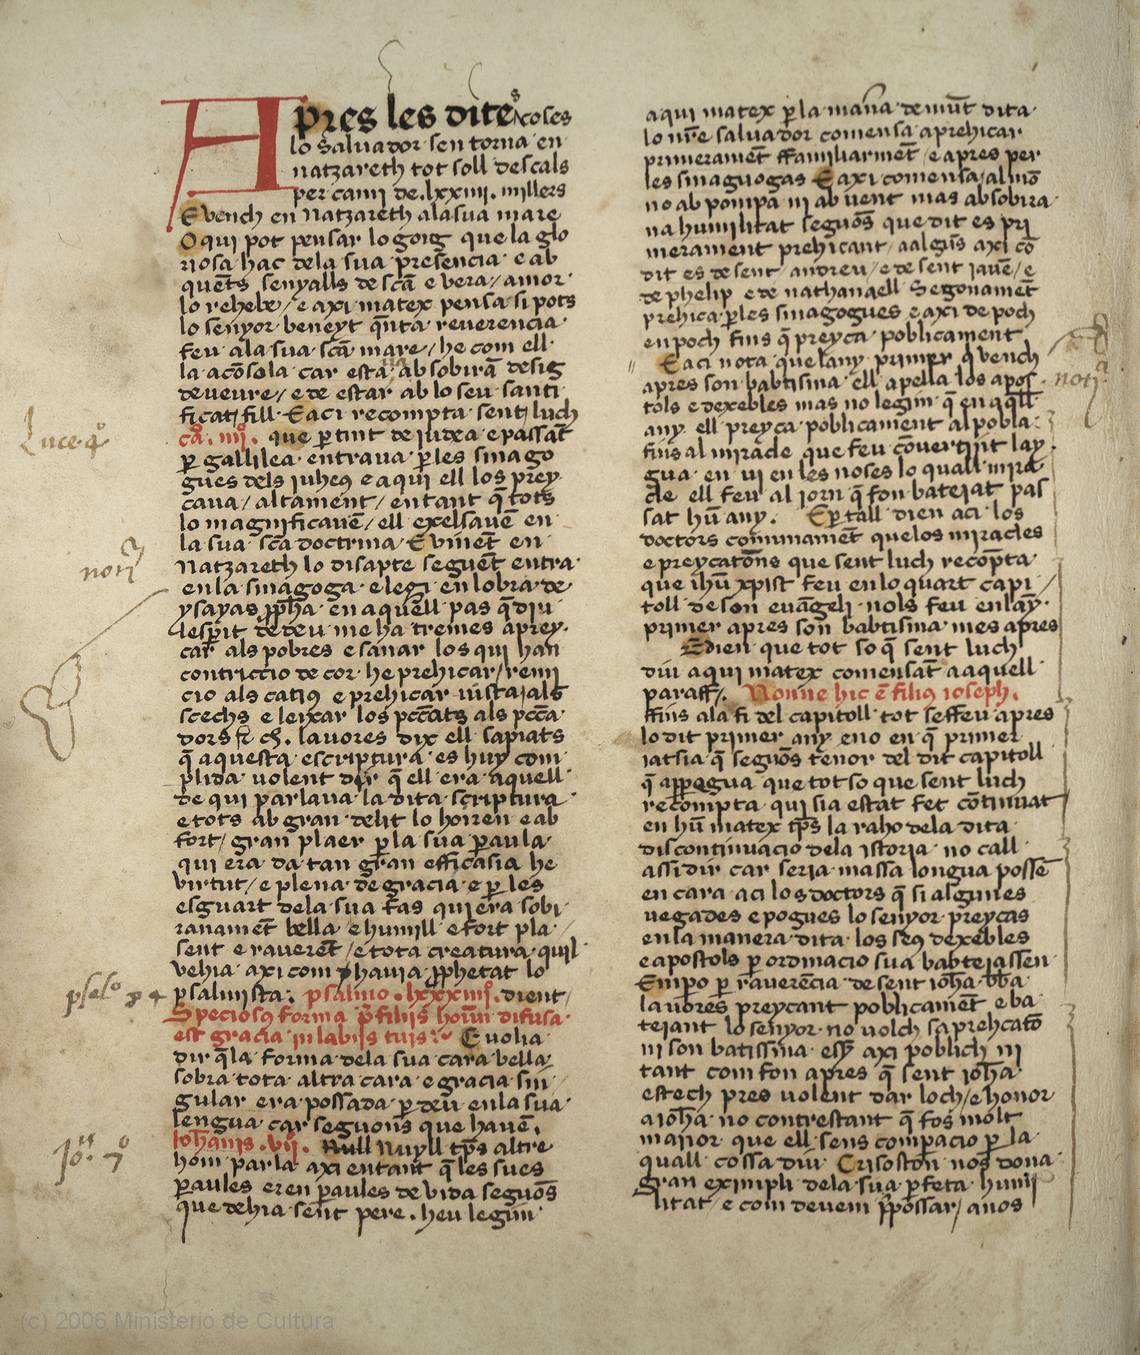 Apres les dites coses
lo saluador sen torna en
natzareth tot soll descals
per cami de .lxxiiii. millers
E vench en natzareth ala sua mare
O qui pot pensar lo goig que la glo
riosa hac dela sua presencia e ab
quēts senyalls de scā e vera amor
lo rehebe / e axi matex pensa si pots
lo senyor beneyt q̄nta reuerencia
feu ala sua scā mare / he com ell
la acōsola car esta ab sobirā desig
de veure / e de estar ab lo seu santi
ficat fill E aci recompta sent luch
ca. iiii. que ꝑtint de iudea e passāt
ꝑ gallilea entraua ꝑ les sinago
gues dels iuheus e aqui ell los prey
caua / altament / en tant q̄ tots
lo magnificauē / ell excelsauē en
la sua scā doctrina E vinēt en
Natzareth lo disapte seguēt entra
en la sinagoga e legi en lobra de
ysayas ꝓpha en aquell pas q̄ diu
lesp̄it de deu me ha tremes a prey
car als pobres e sanar los qui han
contriccio de cor he prehicar / remi
cio als catius e prehicar vista als
scechs e leixar los pccāts als pccā
dors &c. lauores dix ell sapiats
q̄ aquesta escriptura es huy com
plida volent dir q̄ ell era aquell
de qui parlaua la dita scriptura
e tots ab gran delit lo hoiren e ab
fort / gran plaer ꝑ la sua ꝑaula
qui era da tan gran efficasia he
virtut / e plena de gracia e ꝑ les
esguart dela sua fas qui era sobi
ranamēt bella e humill e fort pla
sent e rauerēt / e tota creatura quil
vehia axi com hauia ꝓphetat lo
psalmista. psalmo .lxxxiiii. dient
Speciosus forma p̄ filijs hom̄ difusa
est gracia in labijs tuis. E volia
dir q̄ la forma dela sua cara bella
sobra tota altra cara e gracia sin
gular era possada ꝑ deu en la sua
lengua car segons que hauē.
Johanis .vij. Null nuyll tp̄s altre
hom parla axi en tant q̄ les sues
ꝑaules eren ꝑaules de vida segōs
que dehia sent pere. heu legim
Luce 4
noti
psal̄o 84
Jo. 7
aqui matex ꝑ la mana demūt dita
lo nr̄e saluador comensa a prehicar
primeramēt ffamiliarmēt / e apres per
les sinaguogas E axi comensa al mō
no ab pompa ni ab vent mas ab sobira
na humilitat seguōs que dit es pri
merament prehicant a alguns axi co
dit es de sent andreu / e de sent iauē / e
de phelip e de nathanaell Segonamēt
prehica ꝑ les sinagogues e axi de poch
en poch fins q̄ preyca poblicament
E aci nota que lany primer q̄ vench
apres son babtisma ell apella los apos
tols e dexebles mas no legim q̄ en aq̄ll
any ell preyca poblicament al pobla
fins al miracle que feu cōuertint lay
gua en vi en les noses lo quall mira
cle ell feu al iorn q̄ fon batejat pas
sat hū any. E ꝑ tall dien aci los
doctors comunamēt que los miracles
e preycatōns que sent luch recōpta
que ihū xpist feu en lo quart capi
toll de son euāgeli nols feu en lay
primer apres son babtisma mes apres
E dien que tot so q̄ sent luch
diu aqui matex comensāt a aquell
paraff. Nonne hic ē filius ioseph.
ffins ala fi del capitoll tot seffeu apres
lo dit primer any e no en q̄ primer
iatsia q̄ segōs tenor del dit capitoll
q̄ appegua que tot so que sent luch
recompta qui sia estat fet cōtinuat
en hū matex tp̄s la raho dela dita
discontinuacio dela istoria no call
assi dir car seria massa longua posse
en cara aci los doctors q̄ si algunes
vegades e pogues lo senyor preycas
en la manera dita los seus dexebles
e apostols ꝑ ordinacio sua babteiassen
Empo ꝑ rauerēcia de sent ioħa bba
lauores preycant poblicamēt e ba
tejant lo senyor no volch sa prehcatō
ni son batissma esser axi poblich ni
tant com fon apres q̄ sent ioħa
estech pres volent dar loch / e honor
a ioħa no contrestant q̄ fos molt
maior que ell sens compacio ꝑ la
quall cossa diu Crisostom nos dona
gran eximpli dela sua ꝑfeta humi
litat / e com deuem p̄possar / anos
noti
(c) 2006 Ministerio de Cultura